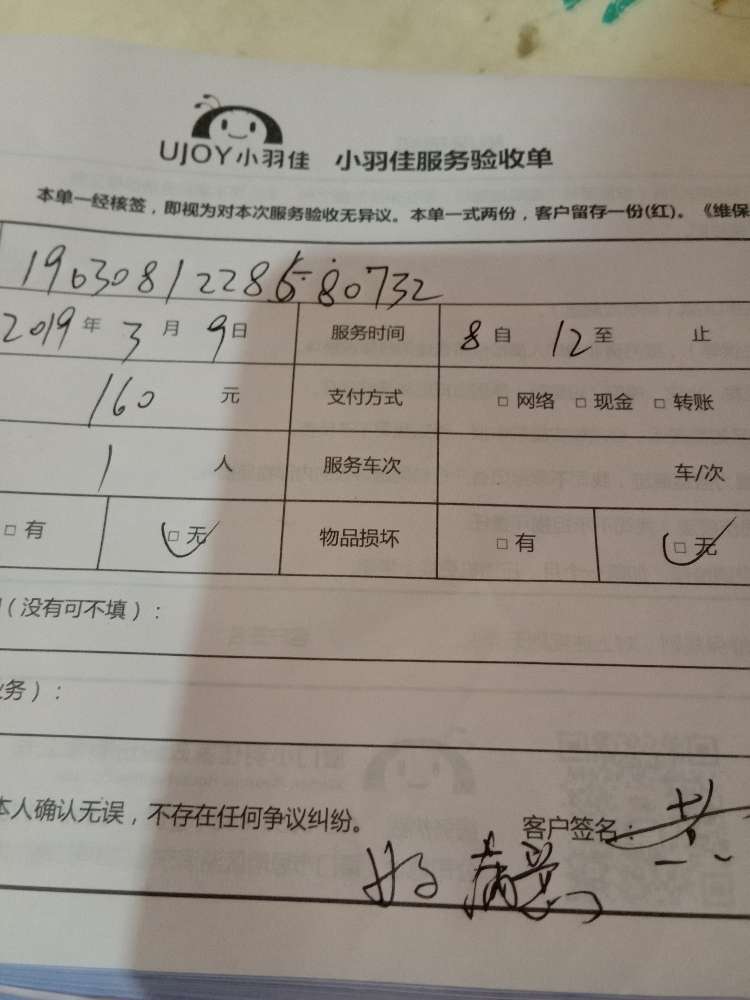 UJOY小羽佳 小羽佳服务验收单
本单一经核签，即视为对本次服务验收无异议。本单一式两份，客户留存一份(红)。《维保
2019年3月9日 服务时间 8自12至 止
160元 支付方式 □网络 □现金 □转账
1人 服务车次 车/次
□有 □无 物品损坏 □有 □无
（没有可不填）：
务）：
本人确认无误，不存在任何争议纠纷。
客户签名：
好 满意